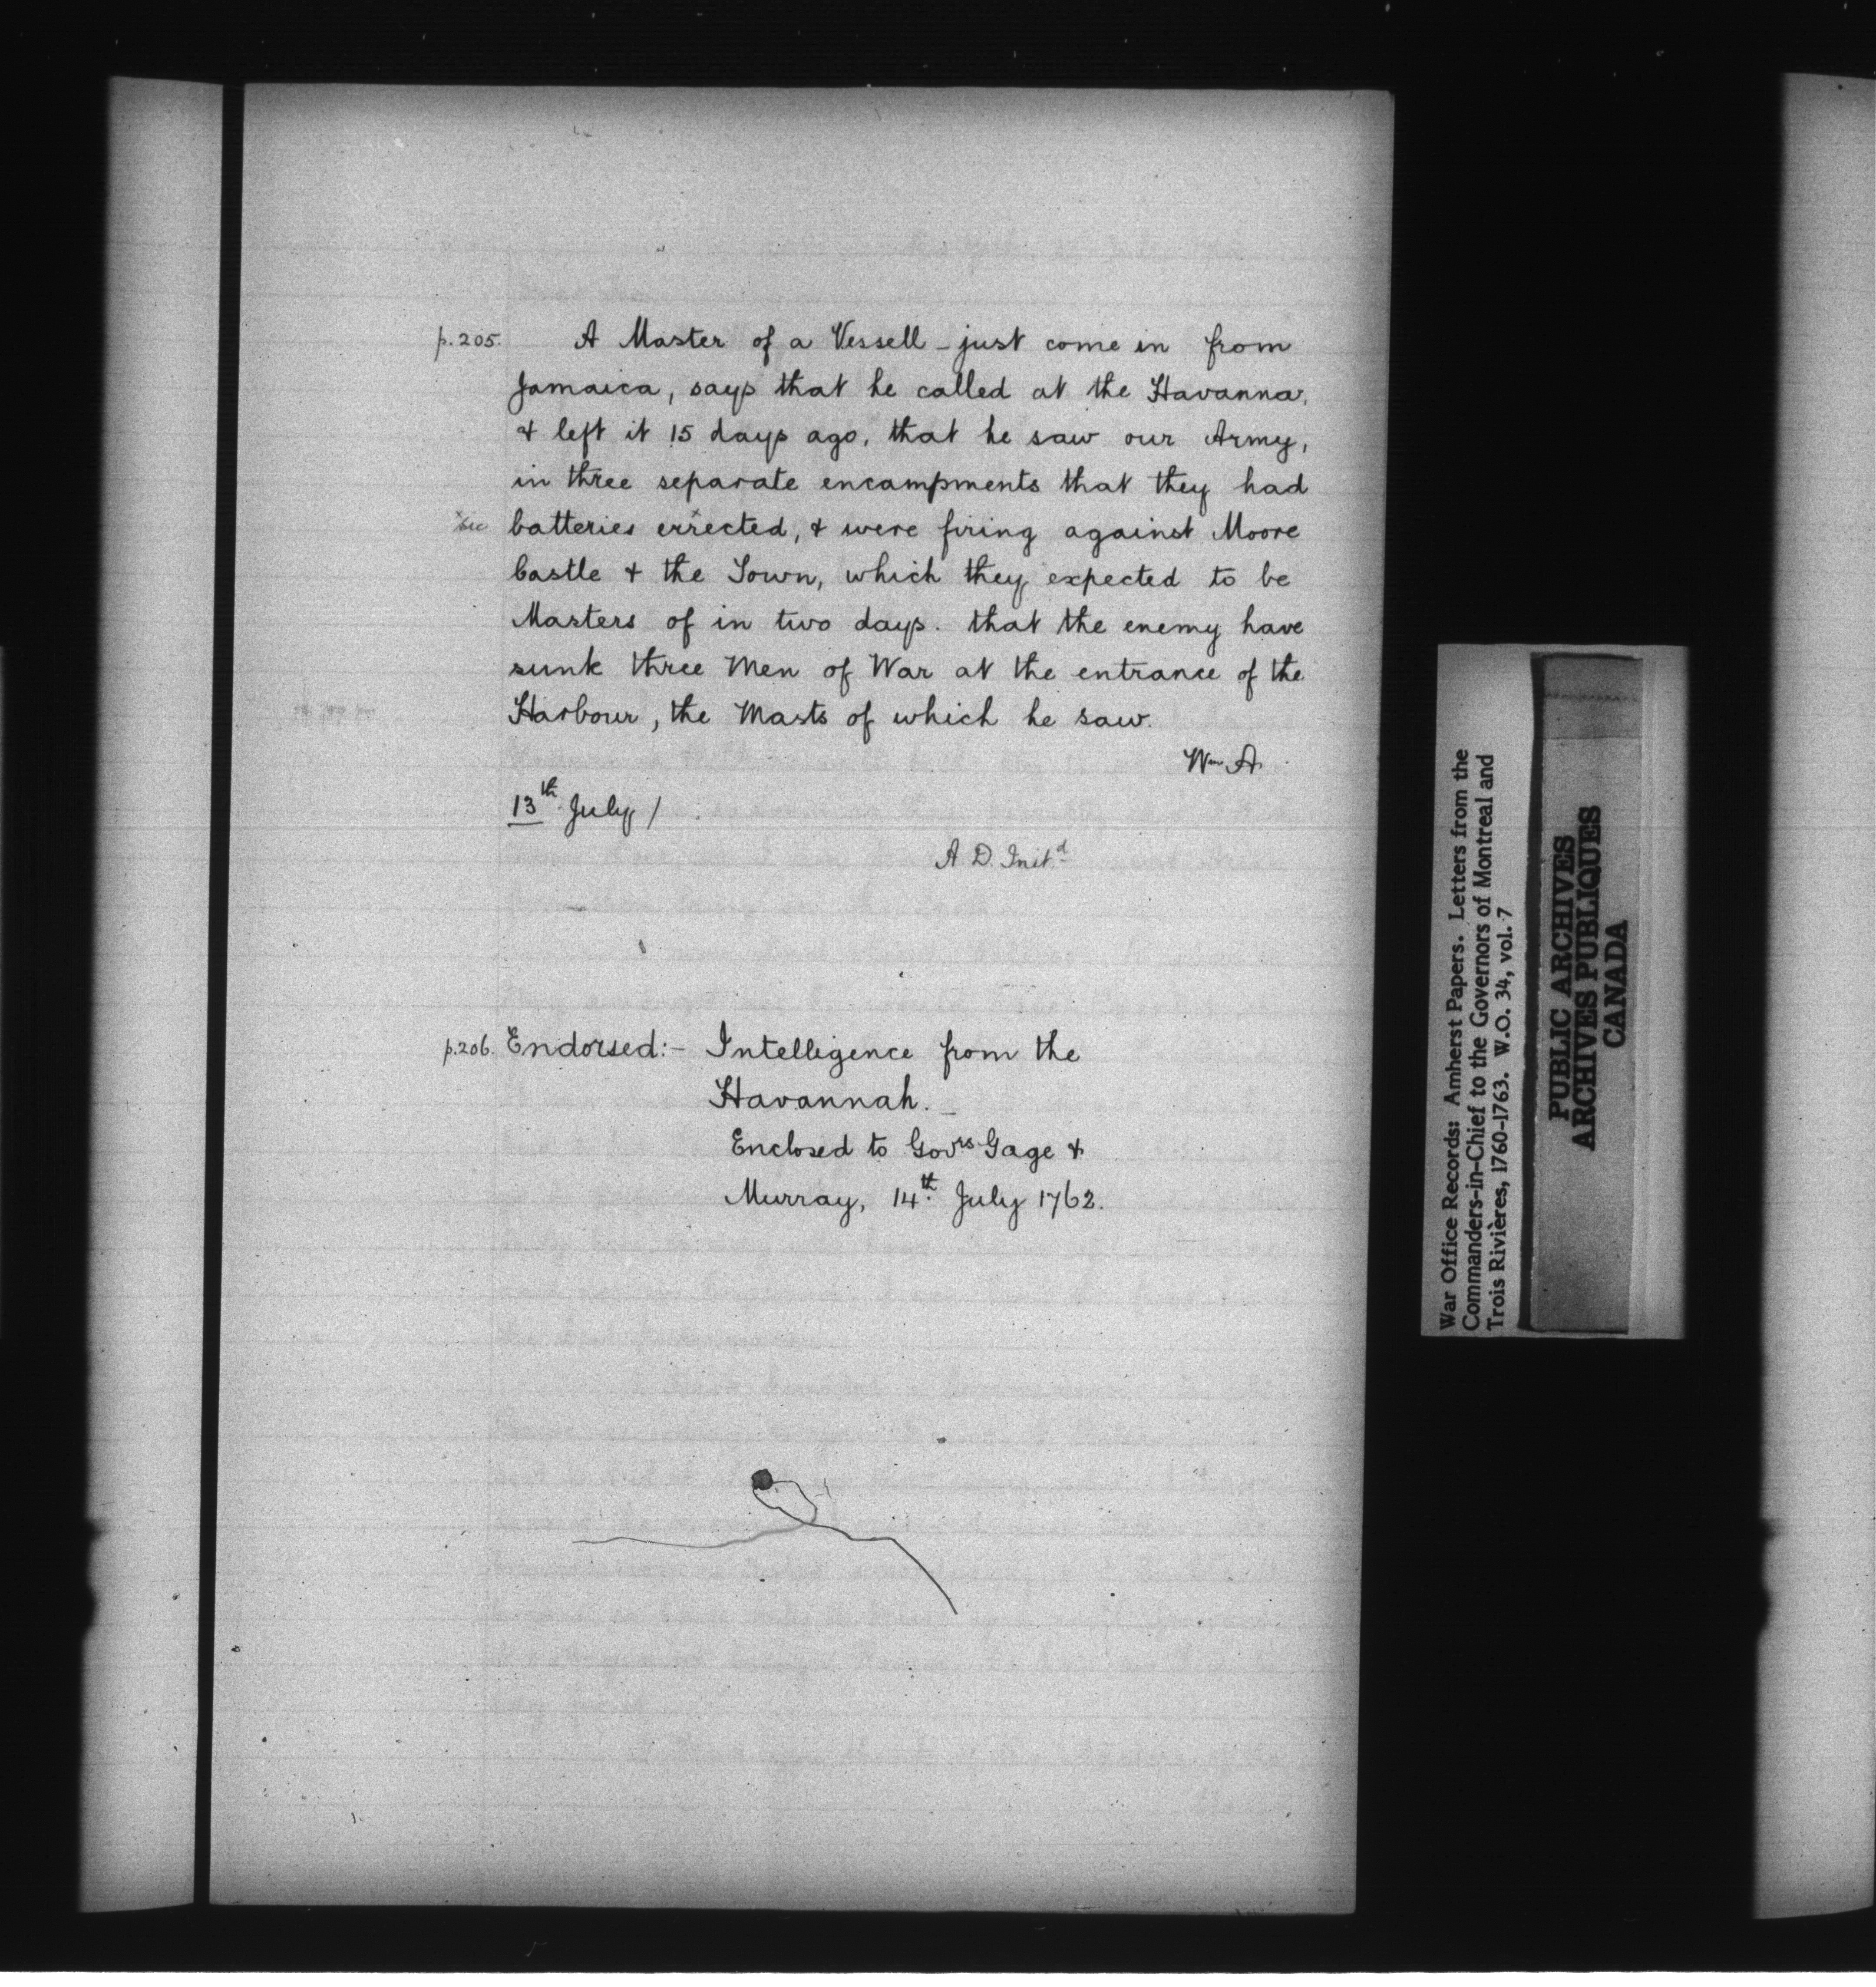 p.205. A Master of a Vessell - just come in from
Jamaica, says that he called at the Havanna,
& left it 15 days ago, that he saw our Army,
in three separate encampments that they had
xsic batteries errected, & were firing against Moore
Castle & the Town, which they expected to be
Masters of in two days. that the enemy have
sunk three Men of War at the entrance of the
Harbour, the Masts of which he saw.
Wm A.
13th July /
A. D. Initd
p.206. Endorsed:- Intelligence from the
Havannah.
Enclosed to Govrs Gage &
Murray, 14th July 1762.
War Office Records: Amherst Papers. Letters from the
Commanders-in-Chief to the Governors of Montreal and
Trois Rivières, 1760-1763. W.O. 34, vol. 7
PUBLIC ARCHIVES
ARCHIVES PUBLIQUES
CANADA